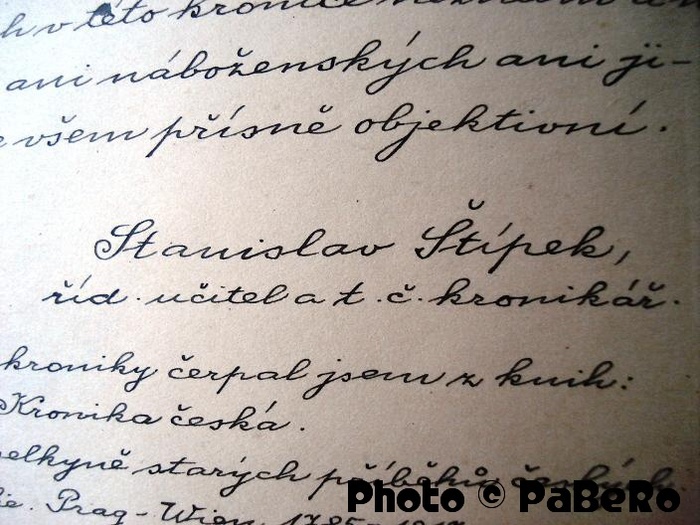 h v této kronice
ani náboženských ani ji-
všem přísně objektivní.
Stanislav Štípek,
říd. učitel a t. č. kronikář.
kroniky čerpal jsem z knih:
Kronika česká.
starých příběhů českých
Prag - Wien, 1785-
Photo © PaBeRo